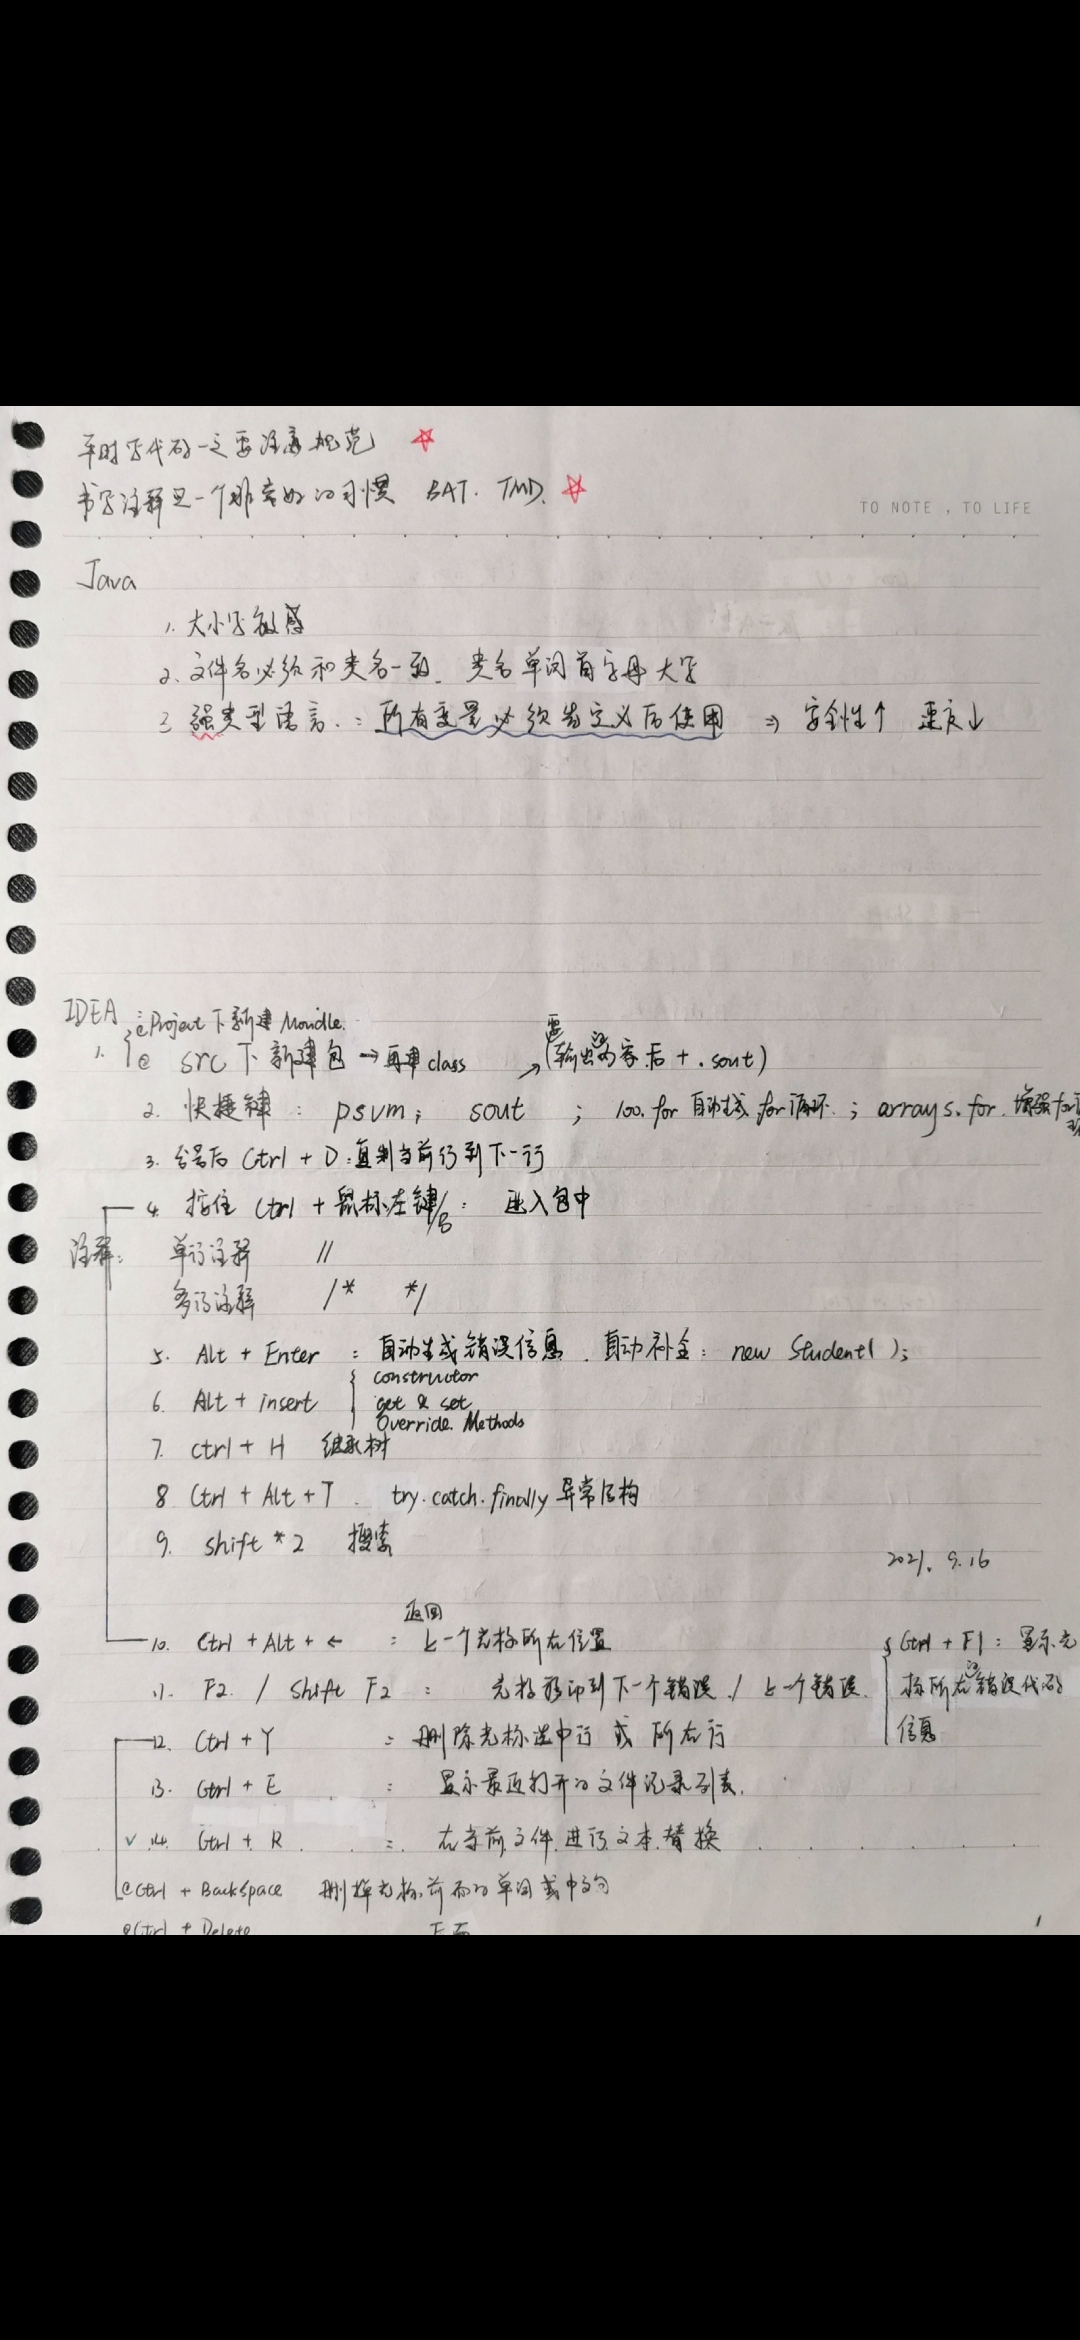 平时写代码一定要注意规范
书写注释是一个非常好的习惯 BAT. TMD.
TO NOTE , TO LIFE
Java
1. 大小写敏感
2、文件名必须和类名一致. 类名单词首字母大写
3 强类型语言.: 所有变量必须先定义后使用 ⇒ 安全性↑ 速度↓
IDEA
Project下新建Moudle.
1. src下新建包→再建class (需输出的内容后 + .sout)
2. 快捷键: psvm; sout ; 100.for 自动生成for循环. ; arrays.for.增强for
3. 分号后 Ctrl + D:复制当前行到下一行
4. 按住 Ctrl + 鼠标左键/B: 进入包中
注释: 单行注释 //
多行注释 /* */
5. Alt + Enter : 自动生成错误信息. 自动补全: new Student( );
6. Alt + insert { constructor
get & set
Override. Methods
7. ctrl + H 继承树
8 Ctrl + Alt + T . try.catch.finally异常结构
9. shift * 2 搜索
2021. 9.16
10. Ctrl + Alt + ← : 返回上一个光标所在位置
11. F2. / Shift F2 : 光标移动到下一个错误 / 上一个错误.
Ctrl + F1: 显示光
标所在的错误代码
信息
12. Ctrl + Y : 删除光标选中行 或 所在行
13. Ctrl + E : 显示最近打开的文件记录列表.
√ 14. Ctrl + R : 在当前文件进行文本替换
Ctrl + BackSpace 删掉光标前面的单词或中文句
Ctrl + Delete 后面
1